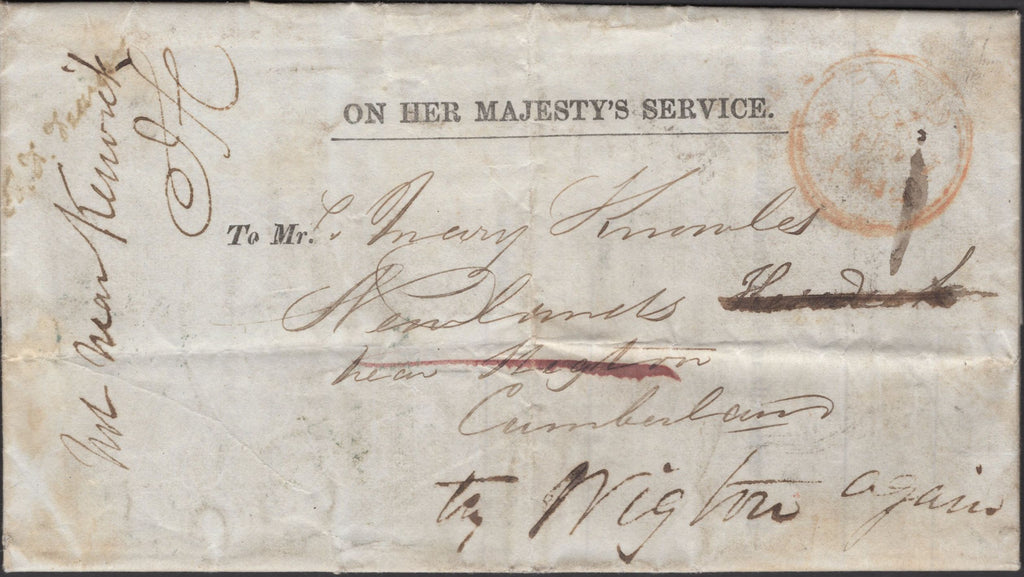 ON HER MAJESTY'S SERVICE.
To Mr. Mary Knowles
Newlands
near Wigton
Cumberland
try Wigton again
Not near Keswick